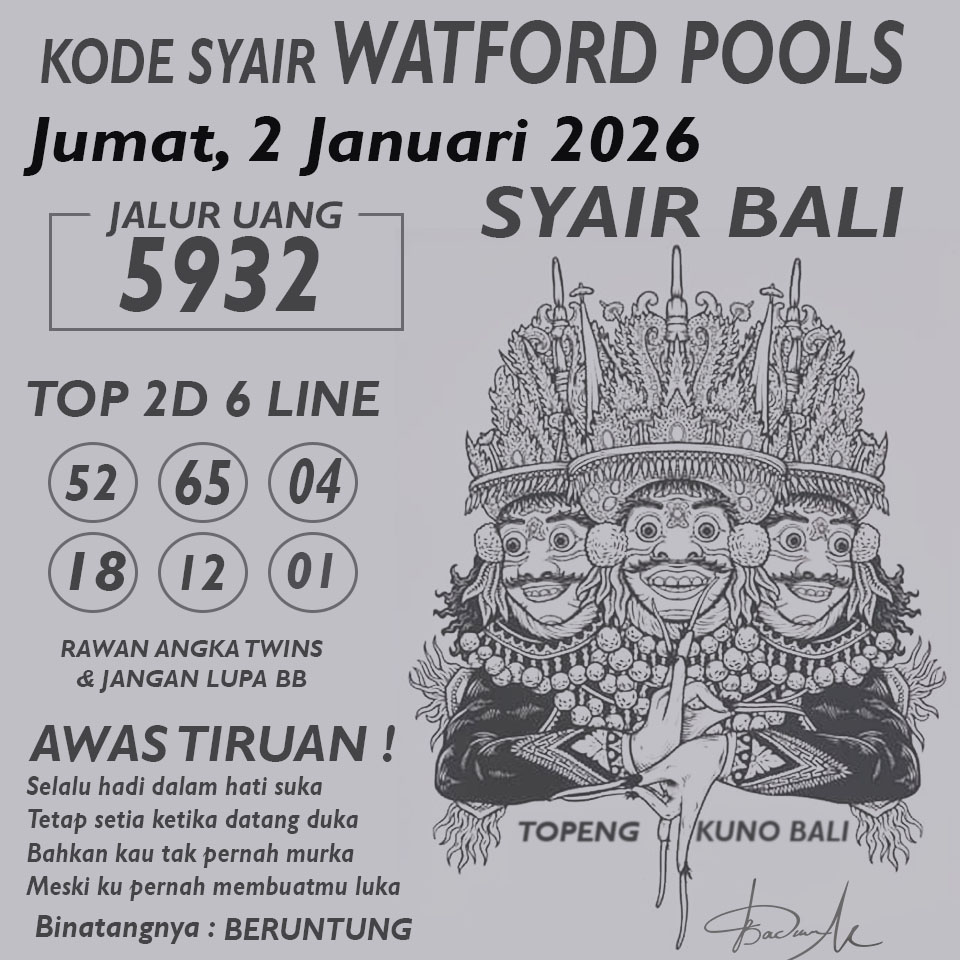 KODE SYAIR WATFORD POOLS
Jumat, 2 Januari 2026
SYAIR BALI
JALUR UANG
5932
TOP 2D 6 LINE
52 65 04
18 12 01
RAWAN ANGKA TWINS
& JANGAN LUPA BB
AWAS TIRUAN !
Selalu hadi dalam hati suka
Tetap setia ketika datang duka
Bahkan kau tak pernah murka
Meski ku pernah membuatmu luka
Binatangnya : BERUNTUNG
TOPENG KUNO BALI